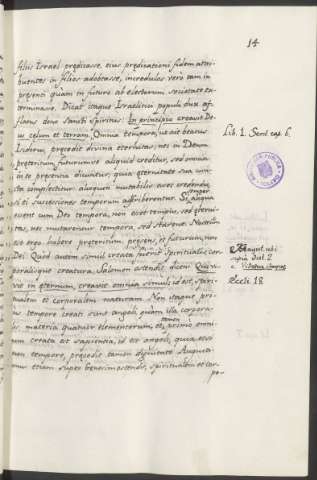 14
filiis Israel predicasse, eius predicationi fidem attri-
buentes in filios adobtasse, incredulos vero tam in
presenti quam in futuro ab electorum societate ex-
terminare. Dicat itaque Israelitici populi dux af-
flatus dono Sancti Spiritus: In principio creavit De-
us celum et terram. Omnia tempora, ut ait beatus
Isidorus, precedit divina eternitas, nec in Deum
preteritum, futurumve aliquid creditur, sed omnia
in eo presentia dicuntur, quia eternitate sua cun-
cta complectitur. alioquin mutabilis
si ei successiones temporum asscriberentur. Si aliqua
semper
essent cum Deo tempora, non esset tempus, sed eterni-
tas, nec mutarentur tempora, sed starent. Nostrum
est ergo habere preteritum, presens, et futurum, non
Dei. Quod autem simul creata fuerit Spiritualis cor-
poralisque creatura, Salomon ostendit, dicens Qui vi-
vit in eternum, creavit omnia simul, id est, spiri-
tualem et corporalem naturam. Non itaque pri-
us tempore creati sunt angeli quam illa corpora-
lis materia quatuor elementorum, et primo omni-
tamen
um creata est sapientia, id est angeli, quia etsi
non tempore, precedit tamen dignitate. Augusti-
nus etiam super Genesim ostendit, spiritualem et cor-
po-
Lib. 1. Sent. cap. 6.
supra Dist. 2
Eccli 18